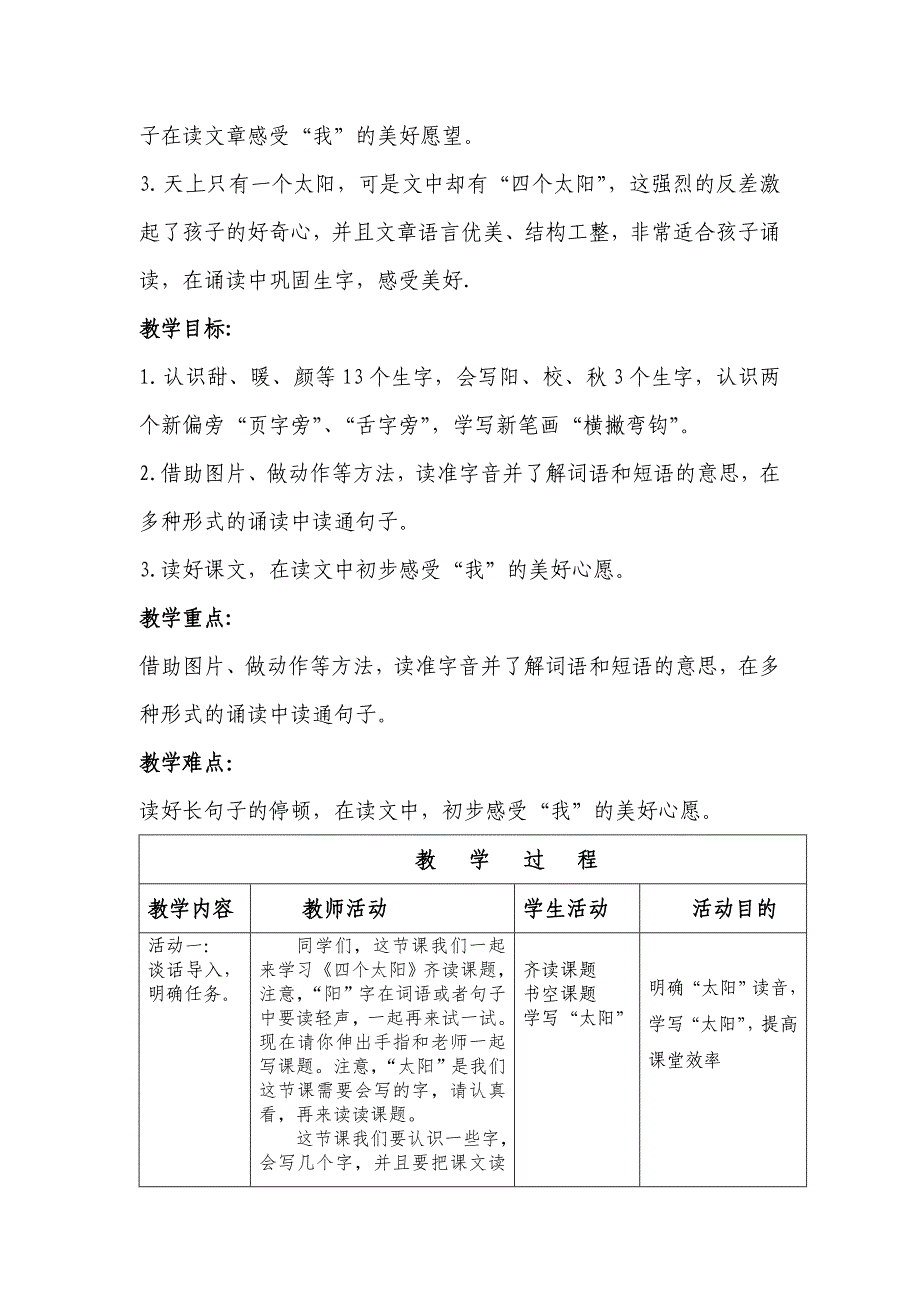 子在读文章感受“我”的美好愿望。
3. 天上只有一个太阳，可是文中却有“四个太阳”，这强烈的反差激
起了孩子的好奇心，并且文章语言优美、结构工整，非常适合孩子诵
读，在诵读中巩固生字，感受美好.
教学目标:
1. 认识甜、暖、颜等13个生字，会写阳、校、秋3个生字，认识两
个新偏旁“页字旁”、“舌字旁”，学写新笔画“横撇弯钩”。
2. 借助图片、做动作等方法，读准字音并了解词语和短语的意思，在
多种形式的诵读中读通句子。
3. 读好课文，在读文中初步感受“我”的美好心愿。
教学重点:
借助图片、做动作等方法，读准字音并了解词语和短语的意思，在多
种形式的诵读中读通句子。
教学难点:
读好长句子的停顿，在读文中，初步感受“我”的美好心愿。
教 学 过 程
教学内容 教师活动 学生活动 活动目的
活动一:
谈话导入，
明确任务。
同学们，这节课我们一起
来学习《四个太阳》齐读课题，
注意，“阳”字在词语或者句子
中要读轻声，一起再来试一试。
现在请你伸出手指和老师一起
写课题。注意，“太阳”是我们
这节课需要会写的字，请认真
看，再来读读课题。
这节课我们要认识一些字，
会写几个字，并且要把课文读
齐读课题
书空课题
学写“太阳”
明确“太阳”读音，
学写“太阳”，提高
课堂效率